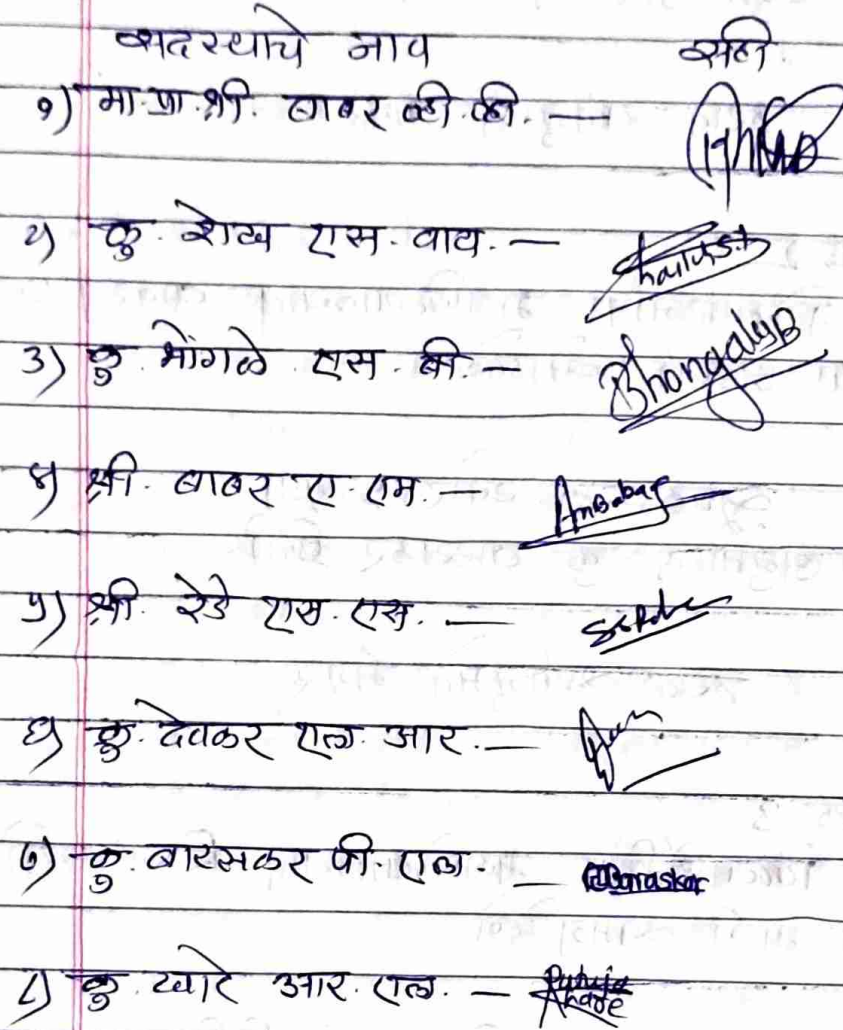 सदस्याचे नाव सही
१) मा. प्रा. श्री. बाबर व्ही. व्ही. —
२) कु. शेख एस. वाय. —
३) कु. भोंगळे एस. बी. — Bhongale SB
४) श्री. बाबर ए. एम. — AmBabar
५) श्री. रेडे एस. एस. —
६) कु. देवकर एल. आर. —
७) कु. बारसकर पी. एल. — Baraskar
८) कु. खारे आर. एल. — Khare